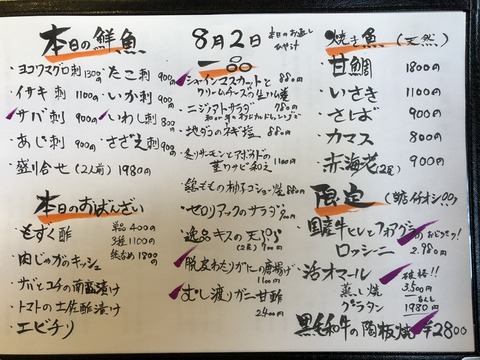 本日の鮮魚
・ヨコワマグロ刺 1300円
・たこ刺 900円
・イサキ刺 1100円
・いか刺 900円
・サバ刺 900円
・いわし刺 800円
・あじ刺 900円
・さざえ刺 900円
・盛り合せ(2人前) 1980円
本日のおばんざい
・もずく酢
単品 400円
3種 1100円
・肉じゃがのキッシュ
1800円
・サバとユチの南蛮漬け
・トマトの土佐酢漬け
・エビチリ
8月2日
本日のお通し
一品
・シャインマスカットと
クリームチーズの生ハム巻 880円
・ニジアトサラダ 780円
・地ダコのネギ塩 880円
・炙りサーモンとアボカドの
わさび和え 1100円
・鶏ももの柚子コショウ焼 880円
・セロリアックのサラダ
・逸品キスの天ぷら
(2尾) 700円
・脱皮わたりがにの唐揚げ
1100円
・むし渡りガニ甘酢
2400円
焼き魚 (天然)
・甘鯛 1800円
・いさき 1100円
・さば 900円
・カマス 800円
・赤海老(2尾) 900円
限定
・国産牛ヒレとフォアグラの
ロッシーニ 2.980円
・活オマール 破格!!
蒸し焼 3500円
グラタン 1980円
黒毛和牛の陶板焼 ¥2800